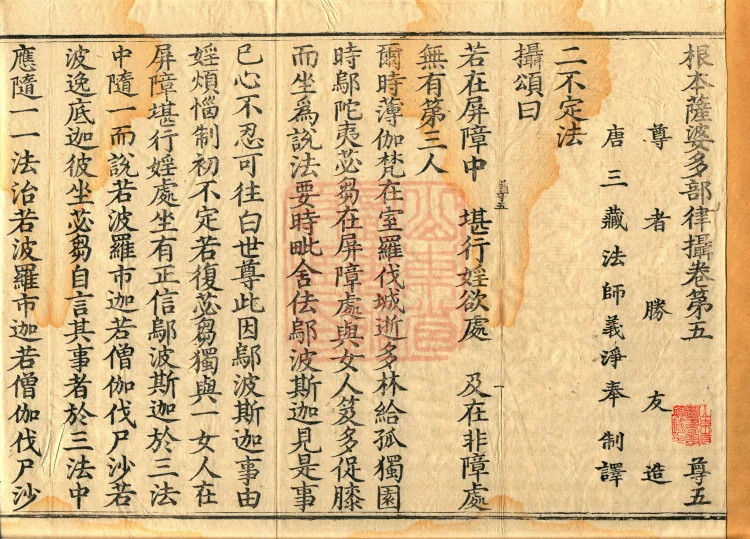 根本薩婆多部律攝卷第五 尊五
尊者勝友造
唐三藏法師義淨奉 制譯
二不定法
攝頌曰
若在屏障中 堪行婬欲處 及在非障處
無有第三人
爾時薄伽梵在室羅伐城逝多林給孤獨園
時鄔陀夷苾芻在屏障處與女人笈多促膝
而坐為說法要時毗舍佉鄔波斯迦見是事
已心不忍可往白世尊此因鄔波斯迦事由
婬煩惱制初不定若復苾芻獨與一女人在
屏障堪行婬處坐有正信鄔波斯迦於三法
中隨一而說若波羅市迦若僧伽伐尸沙若
波逸底迦彼坐苾芻自言其事者於三法中
應隨一一法治若波羅市迦若僧伽伐尸沙